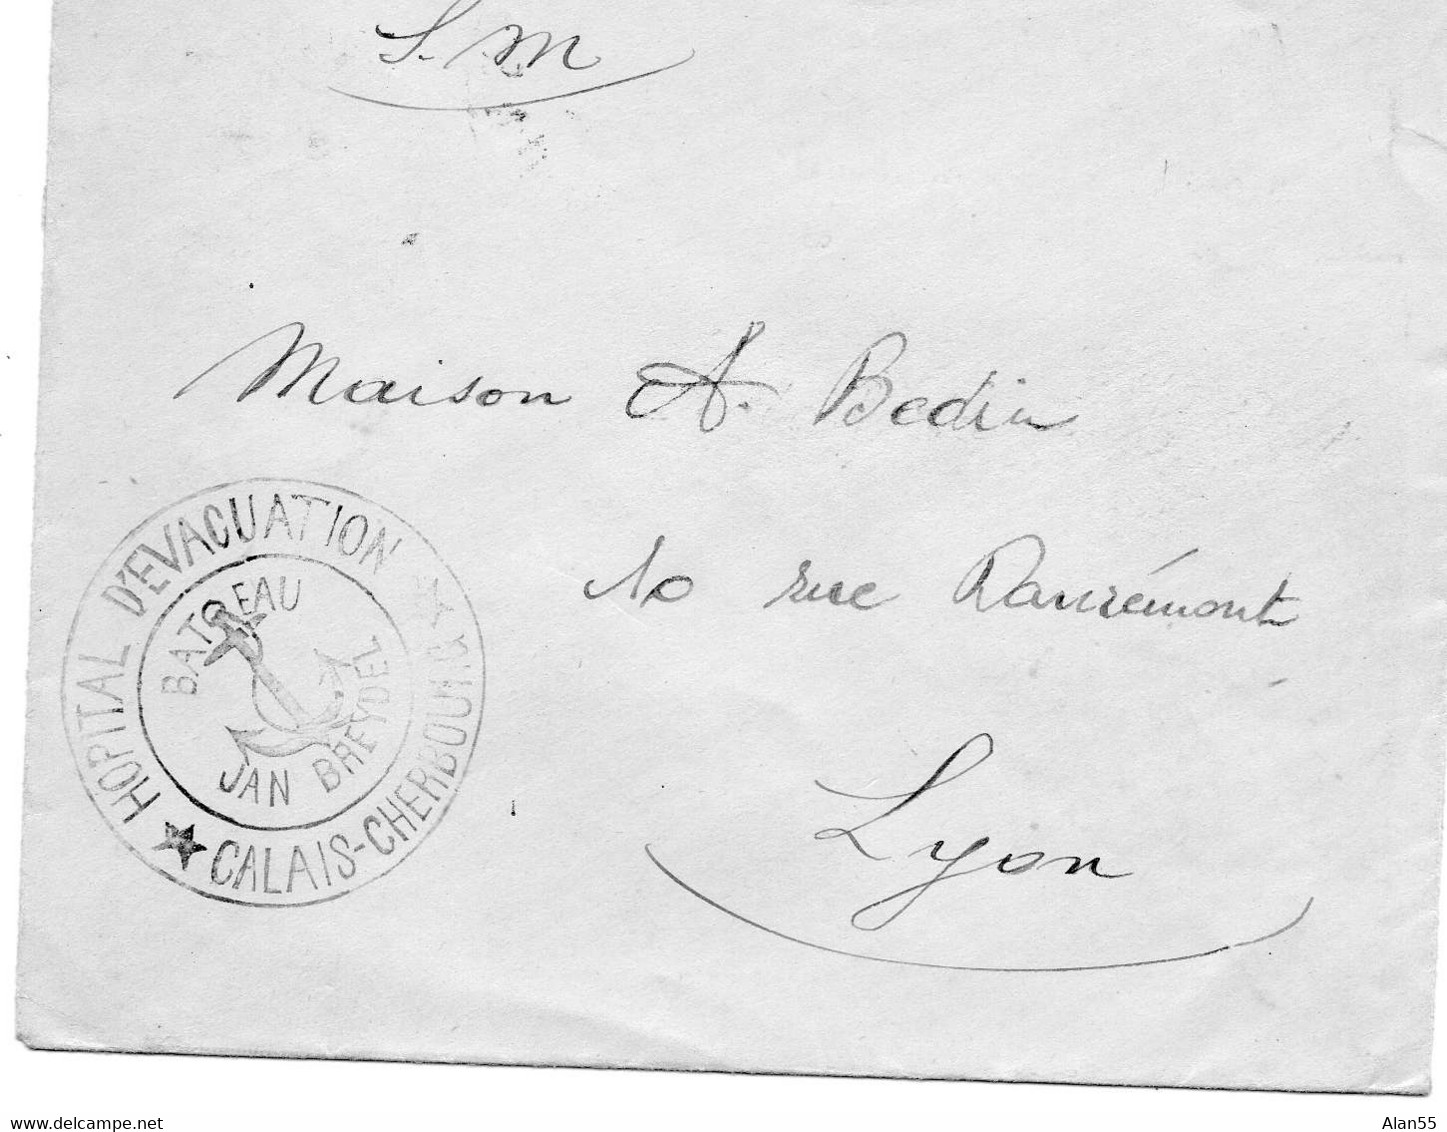 S. M
Maison A. Bedin
10 rue Danrémont
Lyon
HOPITAL D'EVACUATION
CALAIS-CHERBOURG
BATEAU
JAN BREYDEL
www.delcampe.net
Alan55